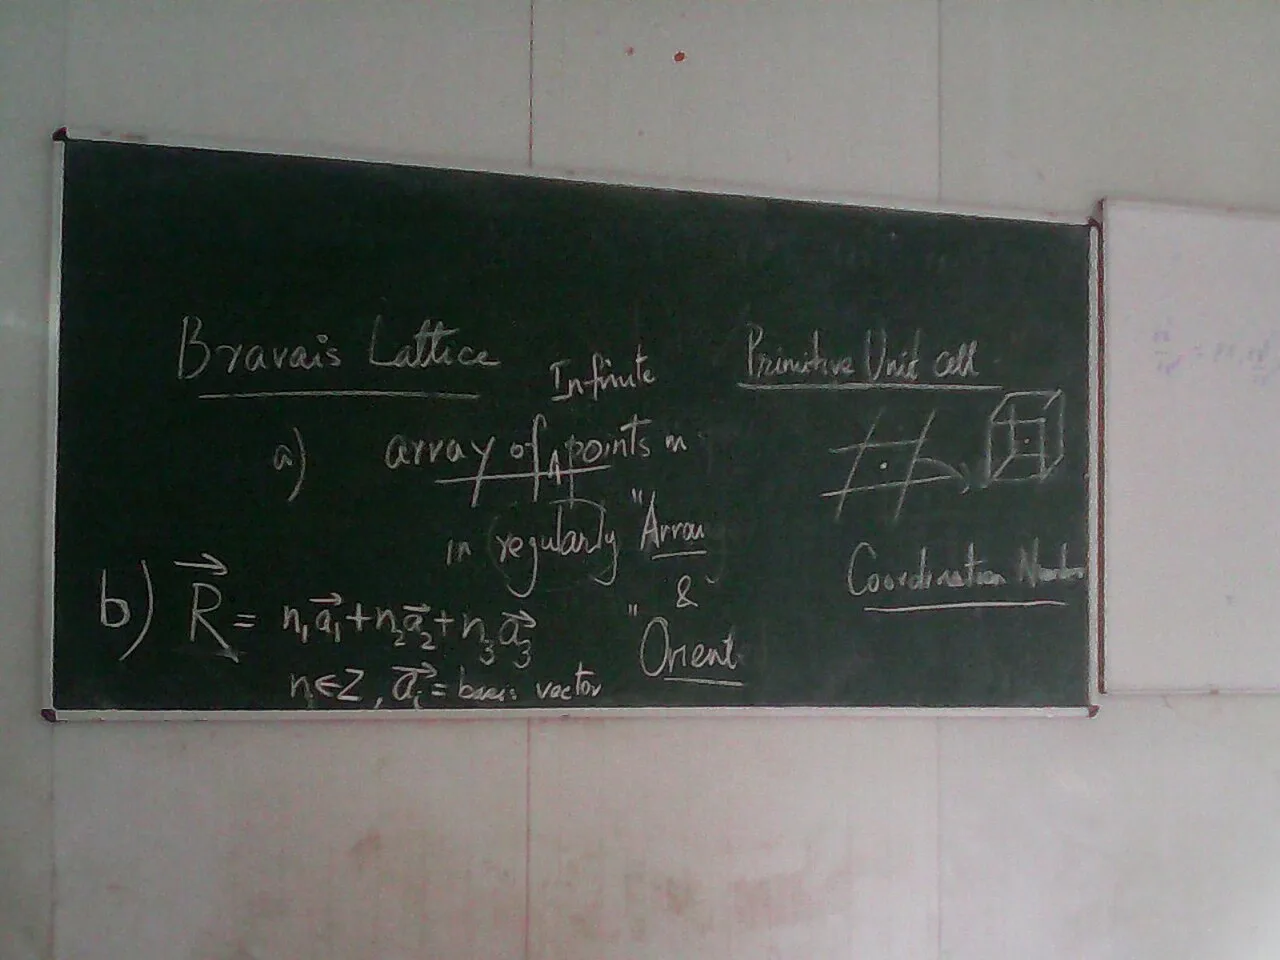 Bravais Lattice
Infinite
a) array of points in
in regularly "Arran
&
"Orient
b) R⃗ = n₁a⃗₁+n₂a⃗₂+n₃a⃗₃
n∈Z, a⃗ᵢ = basis vector
Primitive Unit cell
Coordination Number